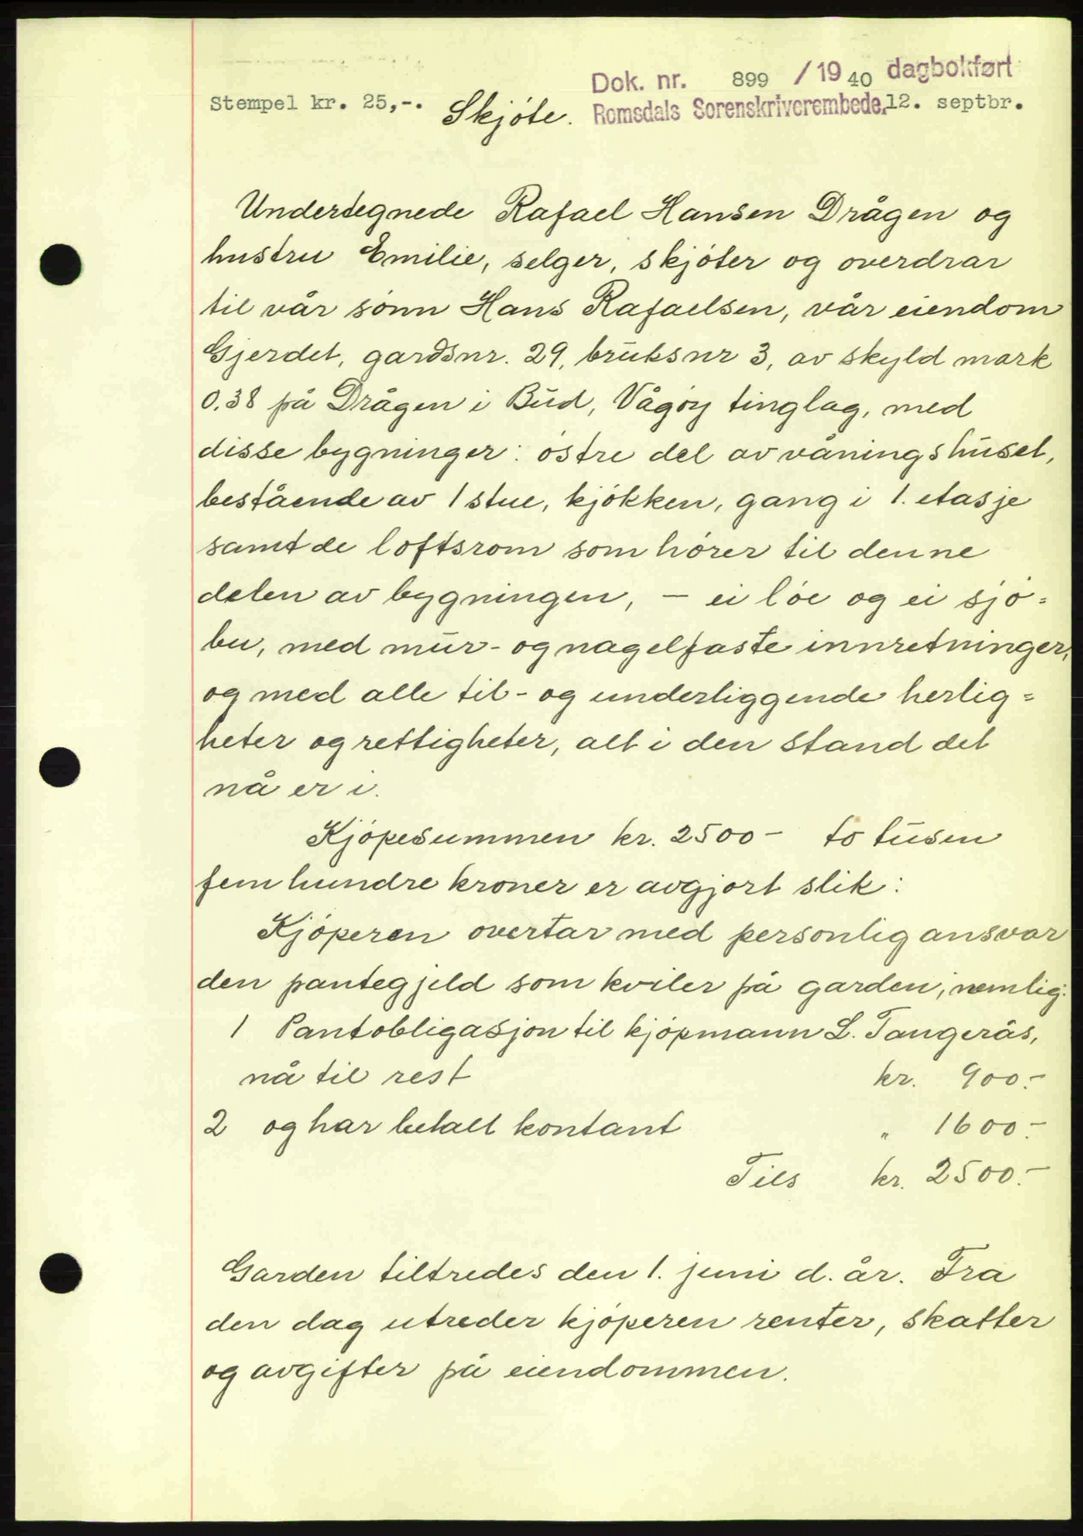 Dok. nr. 899 / 19 40 dagbokført
Stempel kr. 25,-. Skjøte. Romsdals Sorenskriverembede, 12. septbr.
Undertegnede Rafael Hansen Drågen og
hustru Emilie, selger, skjøter og overdrar
til vår sønn Hans Rafaelsen, vår eiendom
Gjerdet, gardsnr. 29, bruksnr 3, av skyld mark
0,38 på Drågen i Bud, Vågøy tinglag, med
disse bygninger: østre del av våningshuset,
bestående av 1 stue, kjøkken, gang i 1. etasje
samt de loftsrom som hører til denne
delen av bygningen, - ei løe og ei sjø=
bu, med mur- og nagelfaste innretninger,
og med alle til- og underliggende herlig=
heter og rettigheter, alt i den stand det
nå er i.
Kjøpesummen kr. 2500 - to tusen
fem hundre kroner er avgjort slik:
Kjøperen overtar med personlig ansvar
den pantegjeld som kviler på garden, nemlig:
1 Pantobligasjon til kjøpmann L. Tangerås,
nå til rest kr. 900.-
2 og har betalt kontant " 1600.-
Tils kr. 2500.-
Garden tiltredes den 1. juni d. år. Fra
den dag utreder kjøperen renter, skatter
og avgifter på eiendommen.